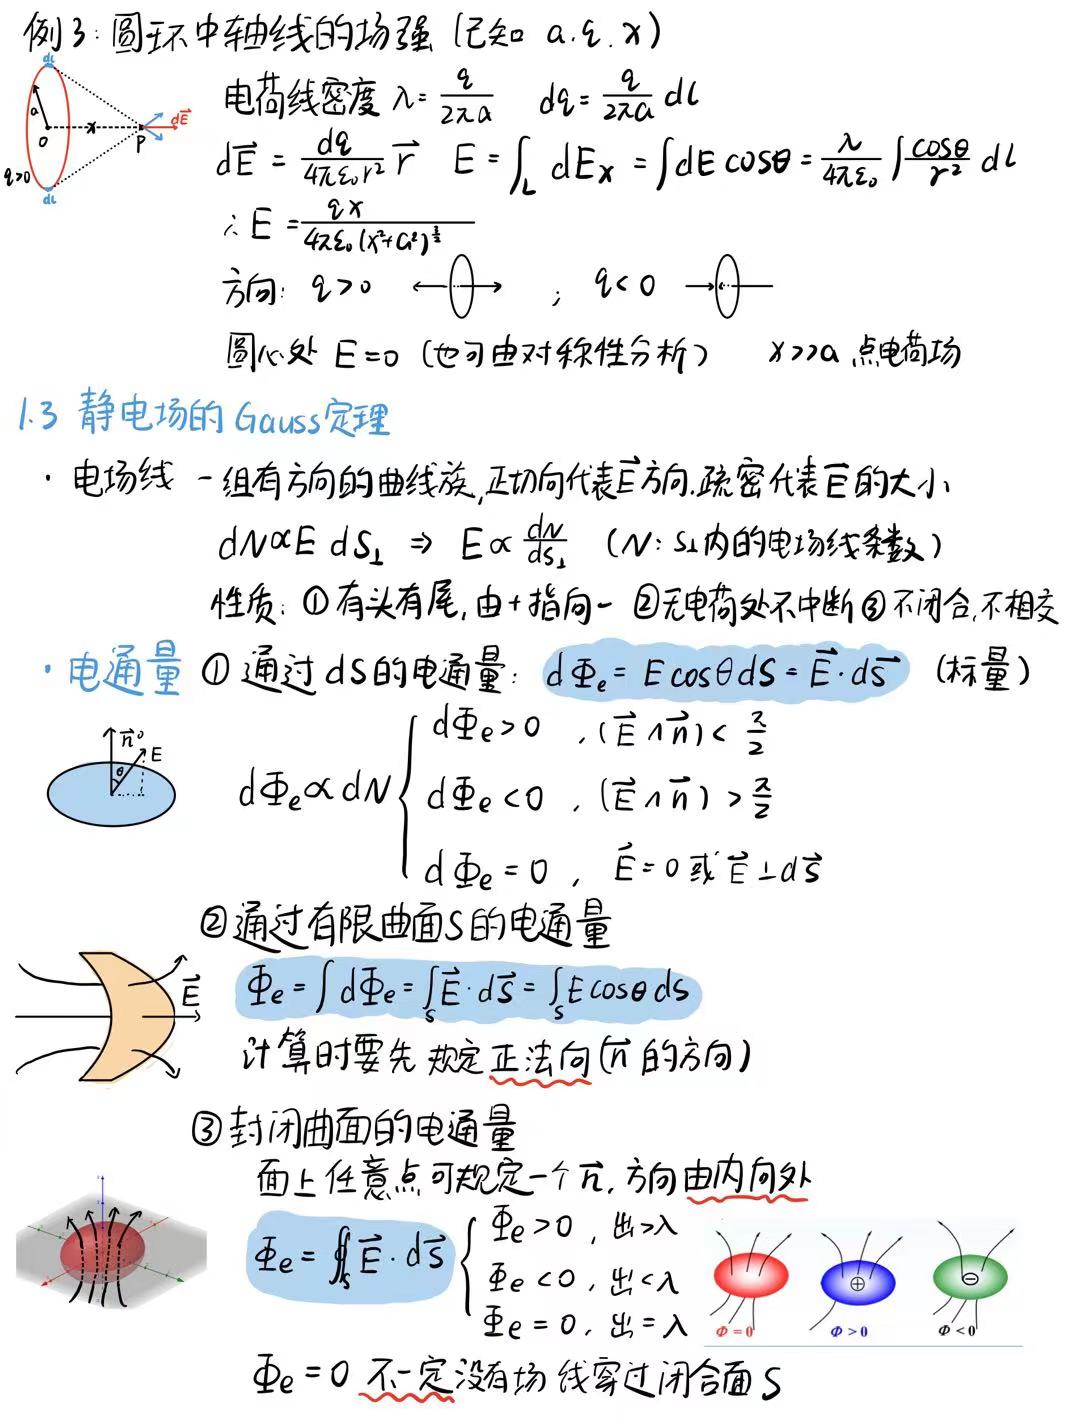 例3：圆环中轴线的场强（已知 a.q.x）
dl
a
x
dE⃗
O
P
q>0
dl
电荷线密度 λ=q/2πa  dq=q/2πa dl
dE⃗ = dq/4πε₀r² r⃗  E=∫_L dEx =∫dE cosθ=λ/4πε₀ ∫cosθ/r² dl
∴E=qx/4πε₀(x²+a²)^(3/2)
方向：q>0 ； q<0
圆心处 E=0（也可由对称性分析） x>>a 点电荷场
1.3 静电场的Gauss定理
· 电场线 一组有方向的曲线族,正切向代表E⃗方向.疏密代表E⃗的大小
dN∝E dS⊥ ⇒ E∝dN/dS⊥ （N：S⊥内的电场线条数）
性质：①有头有尾,由+指向- ②无电荷处不中断③不闭合,不相交
· 电通量 ①通过dS的电通量： dΦe=Ecosθ dS=E⃗·dS⃗ （标量）
n⃗⁰
E
θ
dΦe∝dN { dΦe>0 ,(E⃗∧n⃗)<π/2
dΦe<0 ,(E⃗∧n⃗)>π/2
dΦe=0 , E⃗=0或E⃗⊥dS⃗
②通过有限曲面S的电通量
E⃗
Φe=∫dΦe=∫_S E⃗·dS⃗=∫_S Ecosθ dS
计算时要先规定正法向(n⃗的方向)
③封闭曲面的电通量
面上任意点可规定一个n⃗,方向由内向外
Φe=∯_S E⃗·dS⃗ { Φe>0 ,出>入
Φe<0 ,出<入
Φe=0 ,出=入
Φ=0 Φ>0 Φ<0
Φe=0 不一定没有场线穿过闭合面S